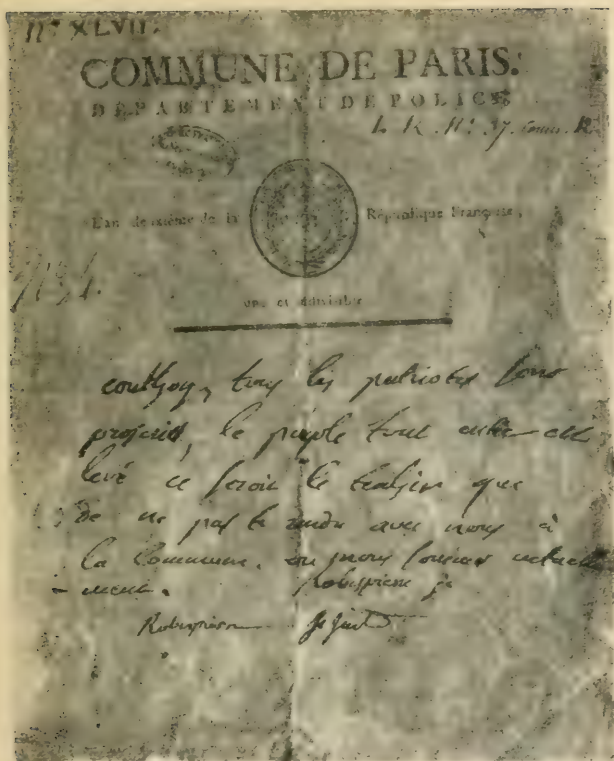 N° XLVII.
COMMUNE DE PARIS.
DEPARTEMENT DE POLICE
L. R. N° 37.
L'an deuxième de la République Française,
une et indivisible
couthon, tous les patriotes sont
proscrits, le peuple tout entier est
levé ce seroit le trahir que
de ne pas te rendre avec nous à
la Commune, ou nous sommes actuelle
-ment. Robespierre je
Robespierre St Just